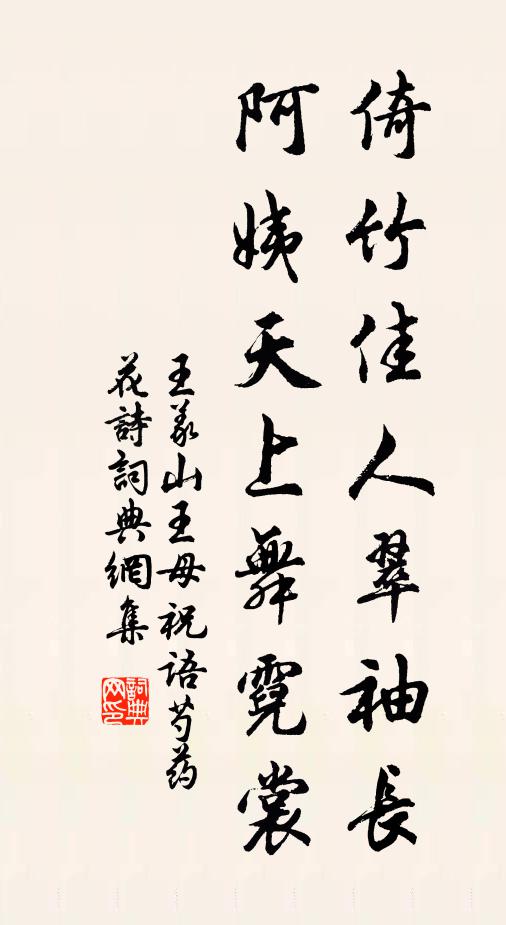 倚竹佳人翠袖長
阿姨天上舞霓裳
王義山王母祝語芍药
花詩詞典網集
詞典
网印